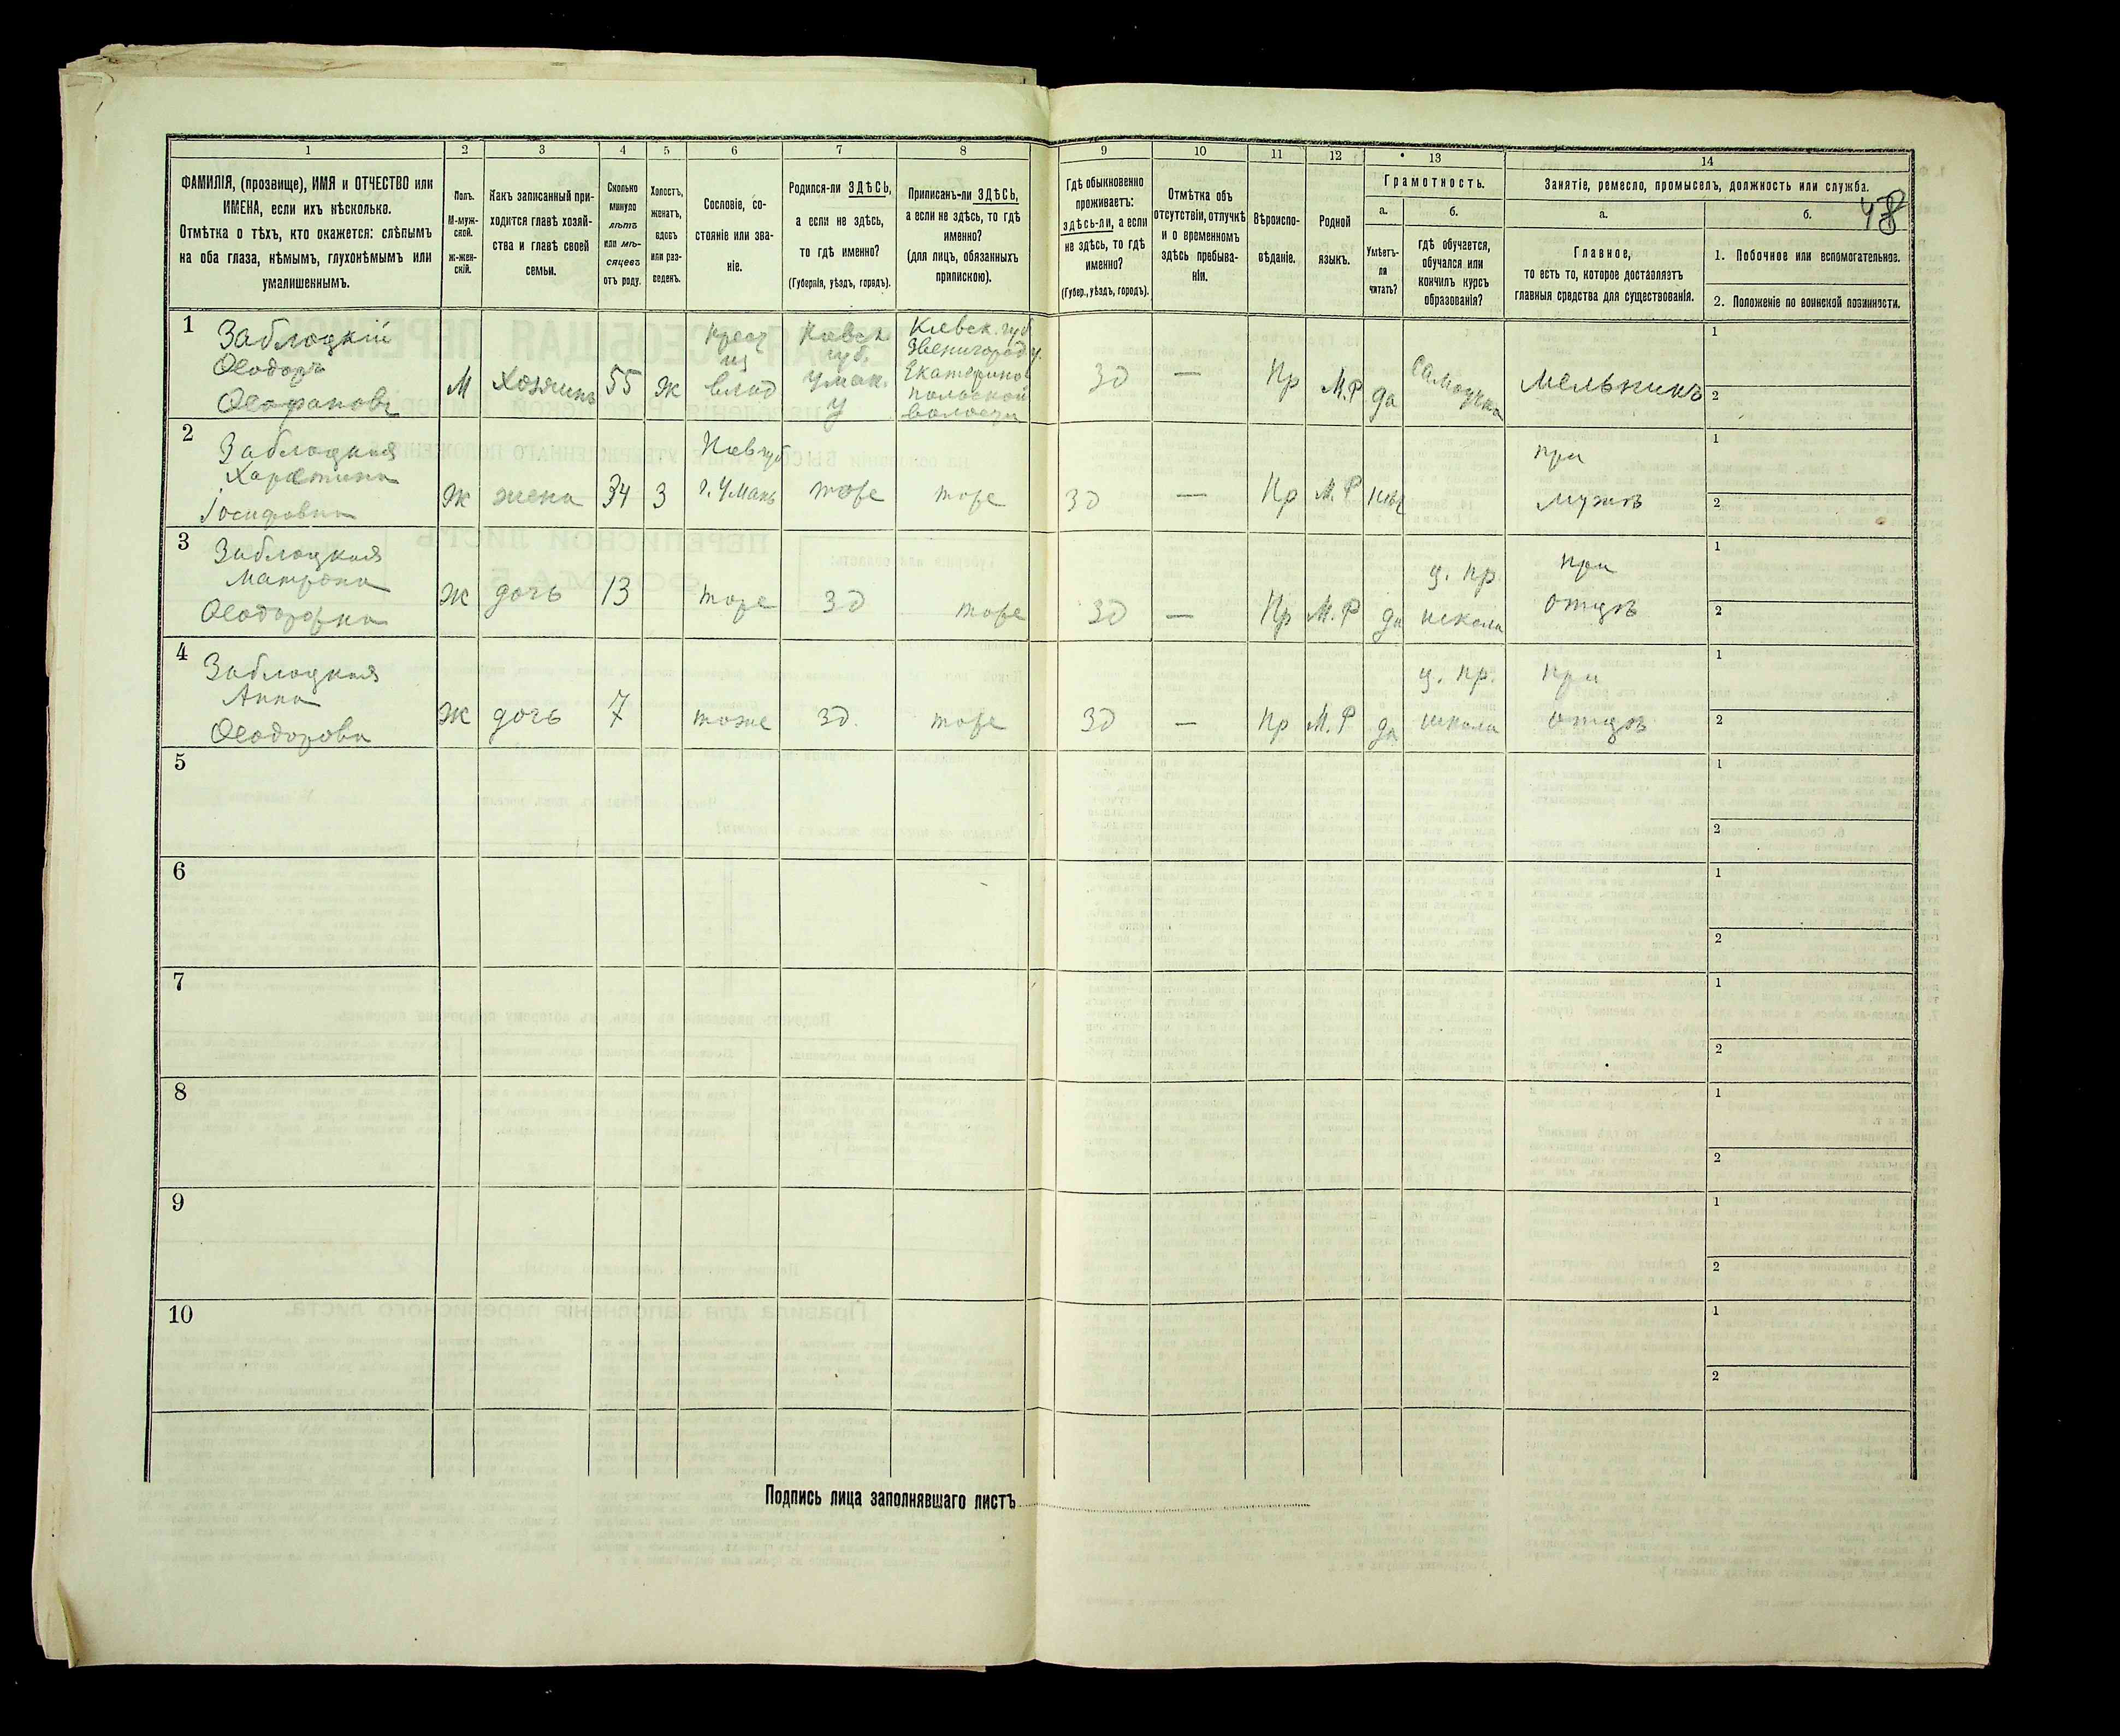 1 2 3 4 5 6 7 8 9 10 11 12 13 14
ФАМИЛІЯ, (прозвище), ИМЯ и ОТЧЕСТВО или
ИМЕНА, если ихъ нѣсколько.
Отмѣтка о тѣхъ, кто окажется: слѣпымъ
на оба глаза, нѣмымъ, глухонѣмымъ или
умалишеннымъ.
Полъ.
М-муж-
ской.
Ж-жен-
скій.
Какъ записанный при-
ходится главѣ хозяй-
ства и главѣ своей
семьи.
Сколько
минуло
лѣтъ
или мѣ-
сяцевъ
отъ роду.
Холостъ,
женатъ,
вдовъ
или раз-
веденъ.
Сословіе, со-
стояніе или зва-
ніе.
Родился-ли ЗДѢСЬ,
а если не здѣсь,
то гдѣ именно?
(Губернія, уѣздъ, городъ).
Приписанъ-ли ЗДѢСЬ,
а если не здѣсь, то гдѣ
именно?
(для лицъ, обязанныхъ
припискою).
Гдѣ обыкновенно
проживаетъ:
здѣсь-ли, а если
не здѣсь, то гдѣ
именно?
(Губер., уѣздъ, городъ).
Отмѣтка объ
отсутствіи, отлучкѣ
и о временномъ
здѣсь пребыва-
ніи.
Вѣроиспо-
вѣданіе.
Родной
языкъ.
Грамотность.
а.
Умѣетъ-
ли
читать?
б.
гдѣ обучается,
обучался или
кончилъ курсъ
образованія?
Занятіе, ремесло, промыселъ, должность или служба.
48
а.
Главное,
то есть то, которое доставляетъ
главныя средства для существованія.
б.
1. Побочное или вспомогательное.
2. Положеніе по воинской повинности.
1
Заблоцкій
Ѳеодоръ
Ѳеофановъ
М
Хозяинъ
55
Ж
Крест
из
влад
Киевск
губ.
Уман.
у
Киевск. губ
Звенигород у.
Екатерино
польской
волости
Зд
—
Пр
М.Р
да
Самоучка
Мельникъ
1
2
2
Заблоцкая
Харетина
Іосифовна
Ж
жена
34
З
Киев губ
г. Умань
тоже
тоже
Зд
—
Пр
М. Р
нѣт
при
мужѣ
1
2
3
Заблоцкая
Матрона
Ѳеодоровна
Ж
дочь
13
тоже
Зд
тоже
Зд
—
Пр
М. Р
да
ц. пр.
школа
при
отцѣ
1
2
4
Заблоцкая
Анна
Ѳеодорова
Ж
дочь
7
тоже
Зд.
тоже
Зд
—
Пр
М. Р
да
ц. пр.
школа
при
отцѣ
1
2
5
1
2
6
1
2
7
1
2
8
1
2
9
1
2
10
1
2
Подпись лица заполнявшаго листъ